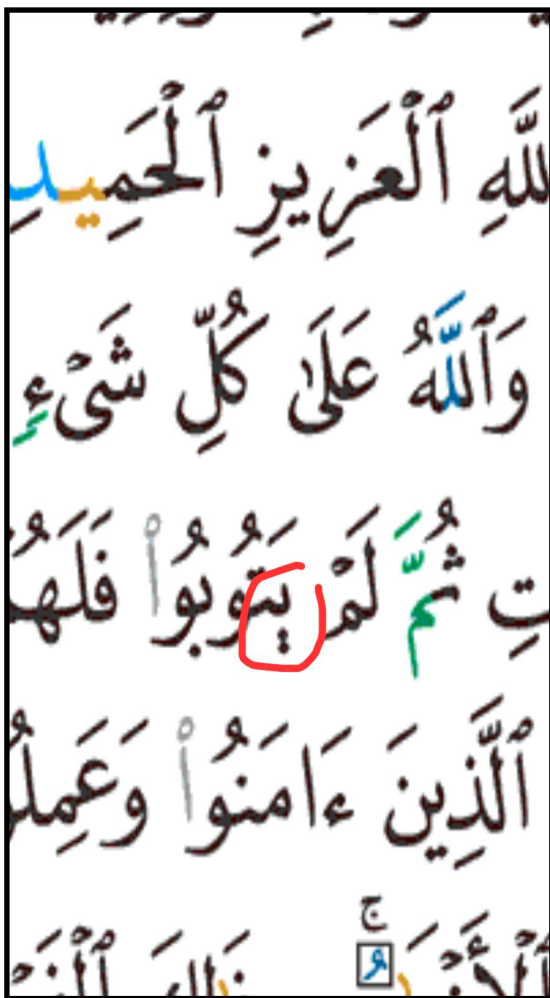 لَّهِ ٱلْعَزِيزِ ٱلْحَمِيدِ
وَٱللَّهُ عَلَىٰ كُلِّ شَىْءٍ
تِ ثُمَّ لَمْ يَتُوبُوا۟ فَلَهُمْ
ٱلَّذِينَ ءَامَنُوا۟ وَعَمِلُ
ج